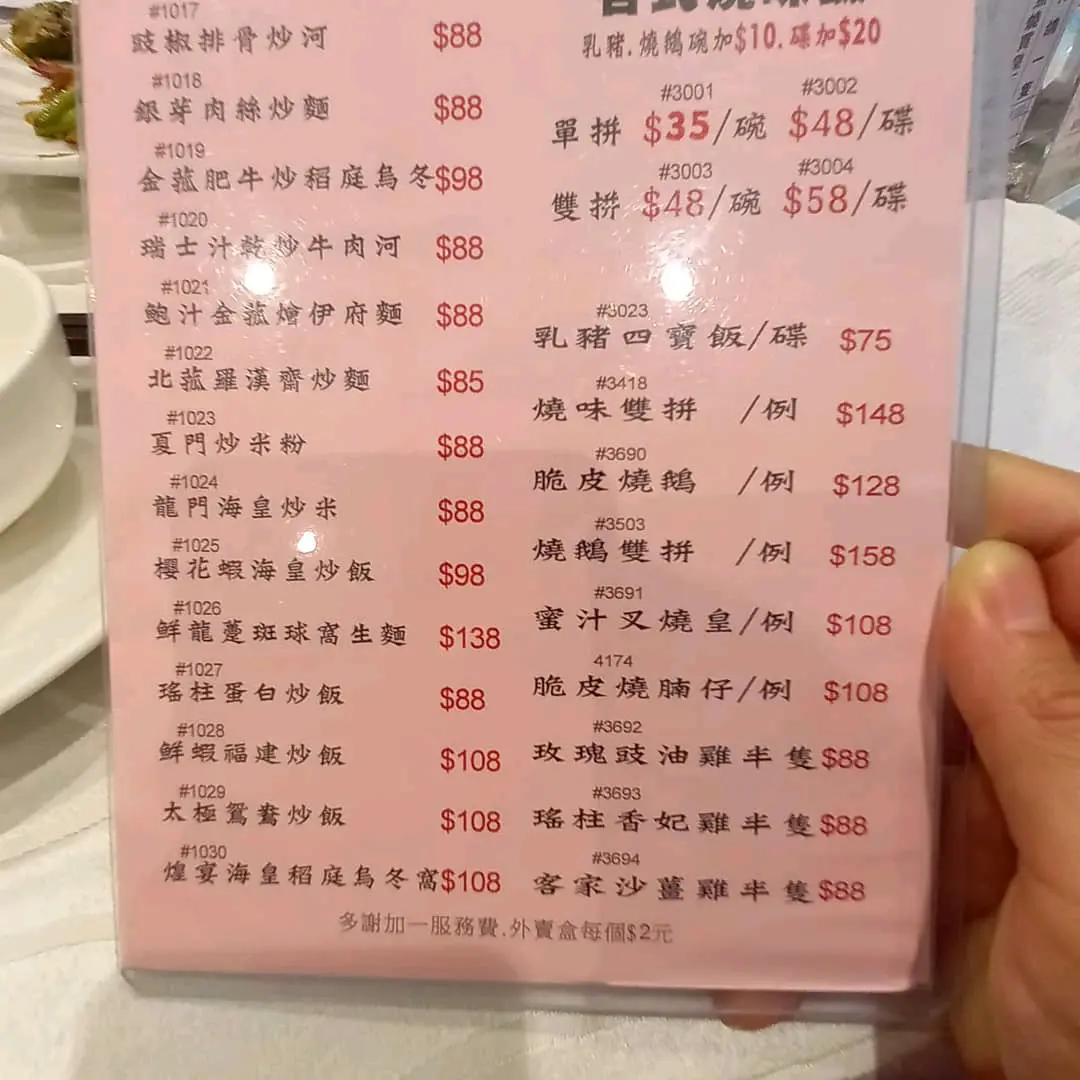 #1017
豉椒排骨炒河 $88
#1018
銀芽肉絲炒麵 $88
#1019
金菰肥牛炒稻庭烏冬$98
#1020
瑞士汁乾炒牛肉河 $88
#1021
鮑汁金菰燴伊府麵 $88
#1022
北菰羅漢齋炒麵 $85
#1023
夏門炒米粉 $88
#1024
龍門海皇炒米 $88
#1025
櫻花蝦海皇炒飯 $98
#1026
鮮龍躉斑球窩生麵 $138
#1027
瑤柱蛋白炒飯 $88
#1028
鮮蝦福建炒飯 $108
#1029
太極鴛鴦炒飯 $108
#1030
煌宴海皇稻庭烏冬窩$108
乳豬.燒鵝碗加$10.碟加$20
#3001 #3002
單拼 $35/碗 $48/碟
#3003 #3004
雙拚 $48/碗 $58/碟
#3023
乳豬四寶飯/碟 $75
#3418
燒味雙拚 /例 $148
#3690
脆皮燒鵝 /例 $128
#3503
燒鵝雙拚 /例 $158
#3691
蜜汁叉燒皇/例 $108
4174
脆皮燒腩仔/例 $108
#3692
玫瑰豉油雞半隻$88
#3693
瑤柱香妃雞半隻$88
#3694
客家沙薑雞半隻$88
多謝加一服務費.外賣盒每個$2元